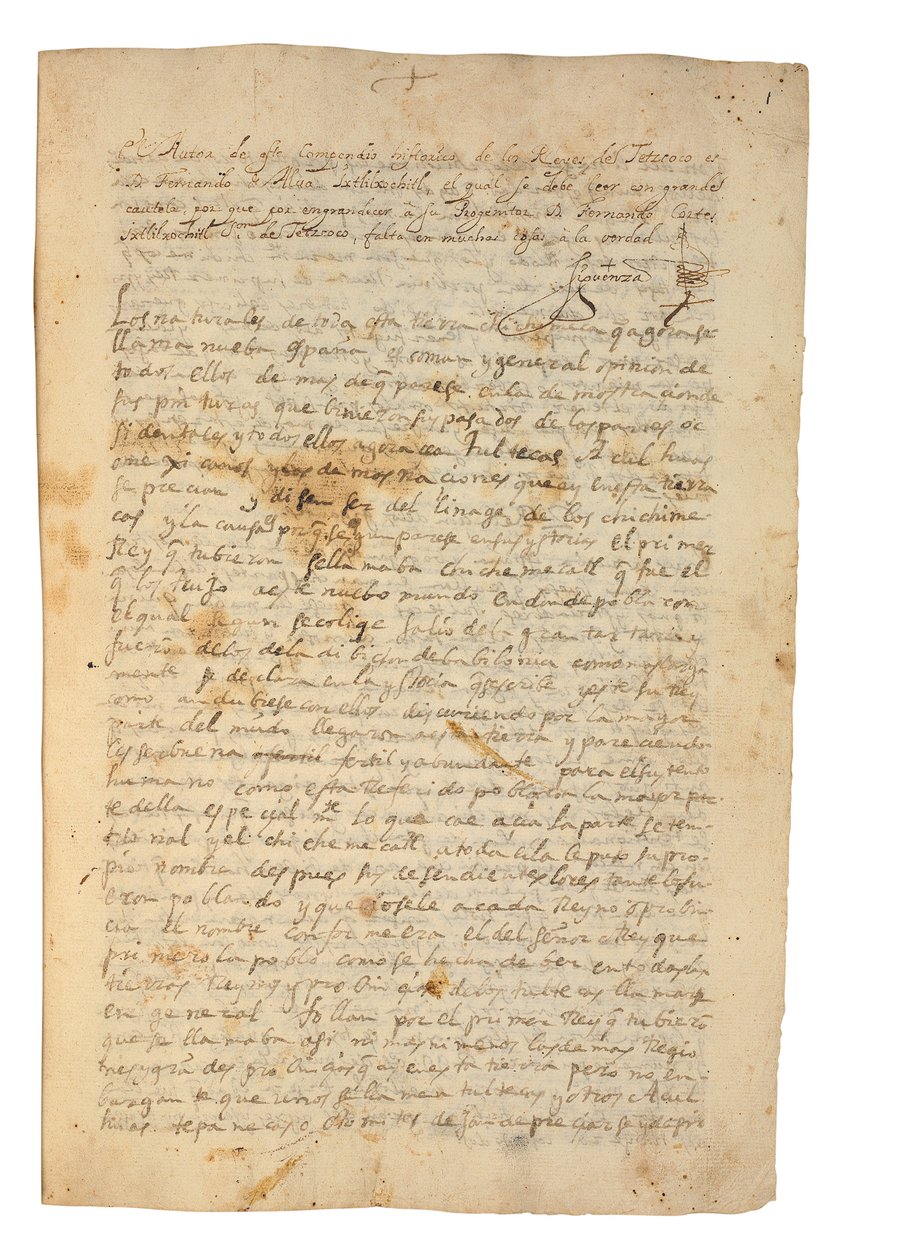 1
El Autor de este Compendio historico de los Reyes de Tetzcoco es
D. Fernando de Alva Ixtlilxochitl, el qual se debe leer con grande
cautela, por que por engrandecer â su Progenitor D. Fernando Cortes
Ixtlilxochitl Sor. de Tetzcoco, falta en muchas cosas â la verdad
Siguenza
Los naturales de toda esta tierra chichimeca q agora se
llama nueba españa es comun y general opinion de
todos ellos de mas de q̃ parese en la demostracion de
sus pinturas que binieron sus pasados de los partes oc
sidentales y todos ellos agora tultecas Aculhuas
mexicanos y las demas naciones que ay en esta tierra
se precian y disen ser del linage de los chichime
cas y la causa porq̃ segun parese en sus ystorias el primer
Rey q̃ tubieron se llamaba chichemecatl q̃ fue el
q̃ los trujo a este nuebo mundo en donde poblaron
el qual segun se colige salio de la gran tartaria y
fuerõ de los de la dibicion de babilonia como mas larga
mente se declara en la ystoria q̃ se escribe y este su Rey
como andubiese con ellos discuriendo por la mayor
parte del mũdo llegaron a esta tierra y pareciendo
les ser buena fertil y abundante para el sustento
humano como esta Referido poblaron la mayor par
te della especialmte lo que cae acia la parte setem
trional y el chichemecatl a toda ella le puso su pro
pio nombre despues sus desendientes lo restante lo fu
eron poblando y a cada Reyno o probin
cia el nombre conforme era el del señor o Rey que
primero la poblo como se hecha de ber en todas las
tierras Reynos y probincias de los tultecas llamar
en general tollan por el primer Rey q̃ tubierõ
que se llamaba asi ni mas ni menos las demas Regio
nes y grãdes probincias q̃ ai en esta tierra pero no en
bargante que unos se llaman tultecas y otros Acul
huas tepanecas o otomites dejan de preciarse y desir